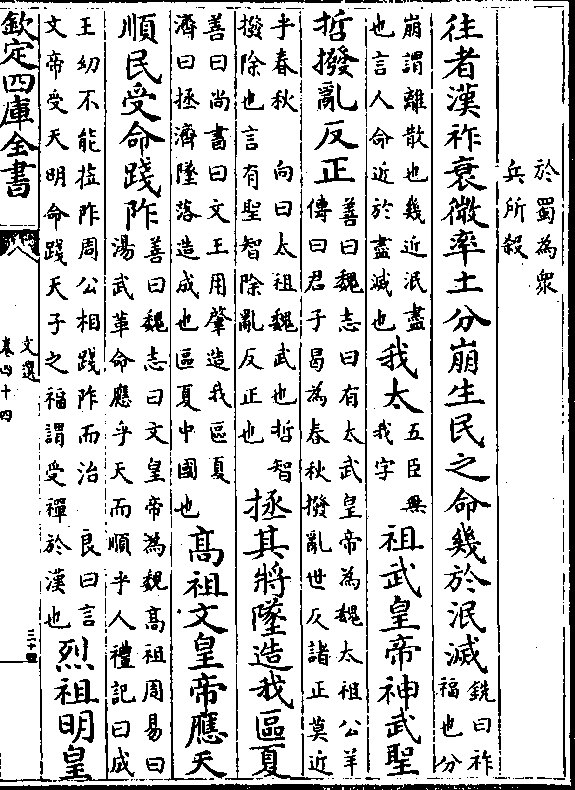 於蜀為衆
兵所殺
往者漢祚衰微率土分崩生民之命幾於泯滅
銑曰祚
福也分
崩謂離散也幾近泯盡
也言人命近於盡滅也
我太
五臣無
我字
祖武皇帝神武聖
哲撥亂反正
善曰魏志曰有太武皇帝為魏太祖公羊
傳曰君子曷為春秋撥亂世反諸正莫近
乎春秋 向曰太祖魏武也哲智
撥除也言有聖智除亂反正也
拯其將墜造我區夏
善曰尚書曰文王用肇造我區夏
濟曰拯濟墜落造成也區夏中國也
高祖文皇帝應天
順民受命踐阼
善曰魏志曰文皇帝為魏高祖周易曰
湯武革命應乎天而順乎人禮記曰成
王幼不能涖阼周公相踐阼而治 良曰言
文帝受天明命踐天子之福謂受禪於漢也
烈祖明皇
欽定四庫全書
文選
卷四十四
三十四